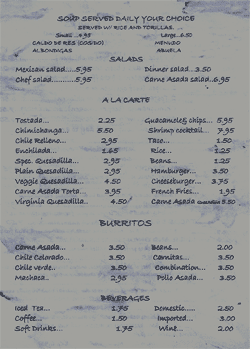 SOUP SERVED DAILY YOUR CHOICE
SERVED W/ RICE AND TORILLAS
Small...4.95 Large..6.50
CALDO DE RES (COSIDO) MENUDO
ALBONDIGAS ABUELA
SALADS
Mexican salad.....5.95 Dinner salad...3.50
Chef salad...........5.95 Carne Asada salad..6.95
A LA CARTE
Tostada... 2.25 Guacamole& chips... 5.95
Chimichanga... 5.50 Shrimp cocktail... 7.95
Chile Relleno... 2.95 Taco... 1.50
Enchilada... 1.65 Rice... 1.25
Spec. Quesadilla... 2.95 Beans... 1.25
Plain Quesadilla... 2.95 Hamburger... 3.50
Veggie Quesadilla... 4.50 Cheeseburger... 3.75
Carne Asada Torta... 3.95 French Fries... 1.95
Virginia Quesadilla.. 4.50 Carne Asada Quesadilla 5.50
BURRITOS
Carne Asada... 3.50 Beans... 2.00
Chile Colorado... 3.50 Carnitas... 3.50
Chile verde... 3.50 Combination... 3.50
Machaca... 2.95 Pollo Asada... 3.50
BEVERAGES
Iced Tea... 1.75 Domestic..... 2.50
Coffee... 1.50 Imported... 3.00
Soft Drinks... 1.75 Wine... 2.00